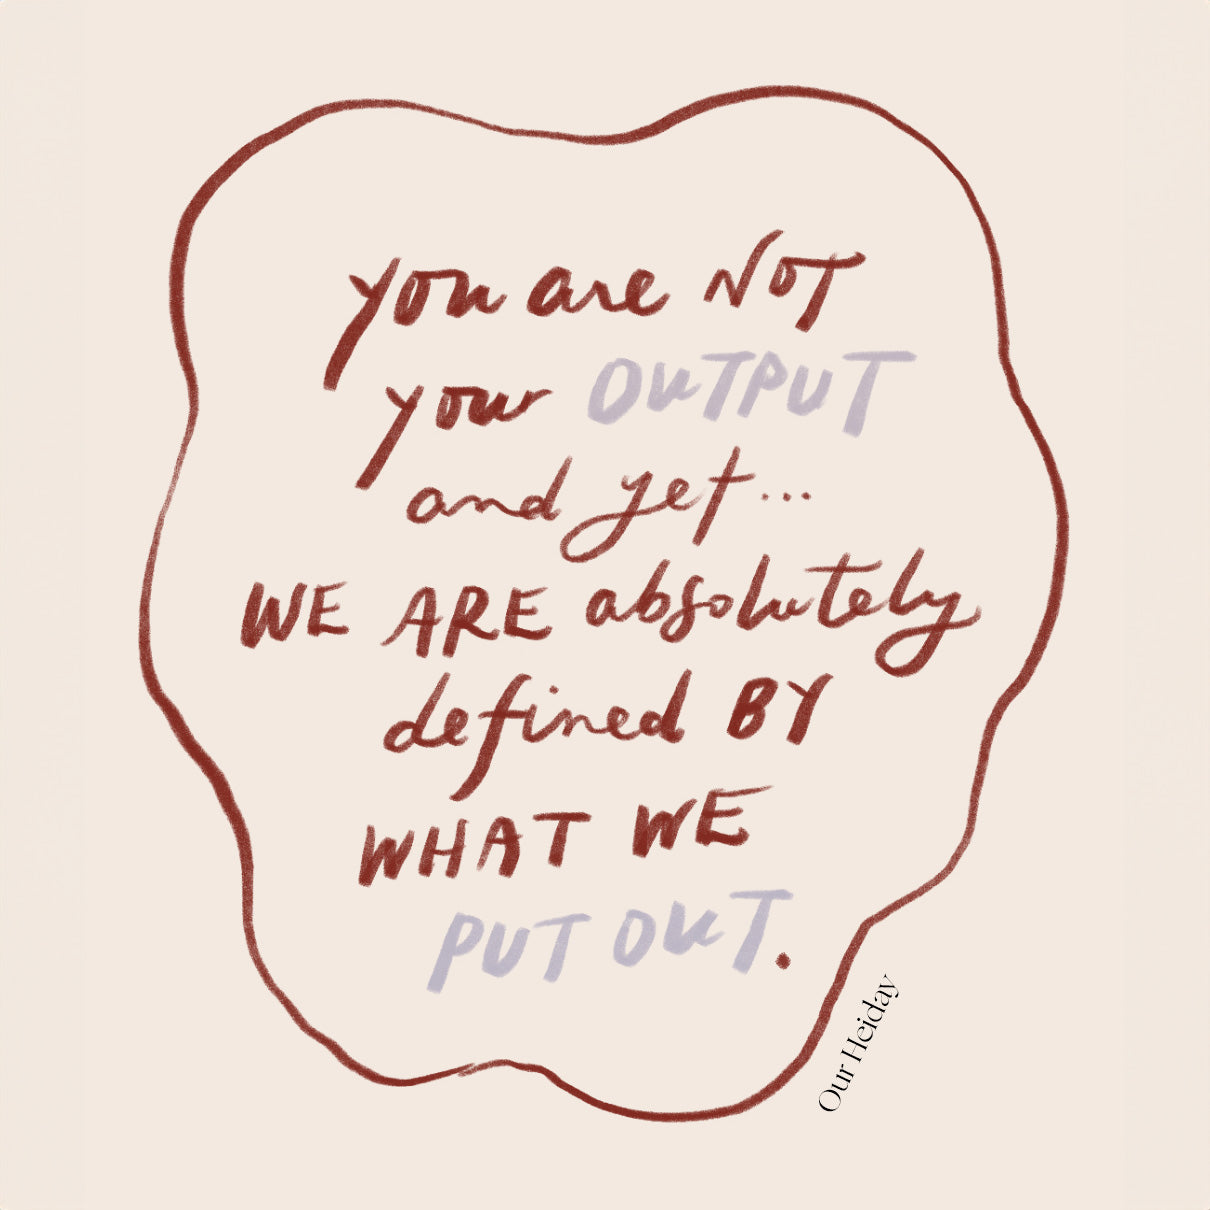 you are NOT
your OUTPUT
and yet...
WE ARE absolutely
defined BY
WHAT WE
PUT OUT.
Our Heiday